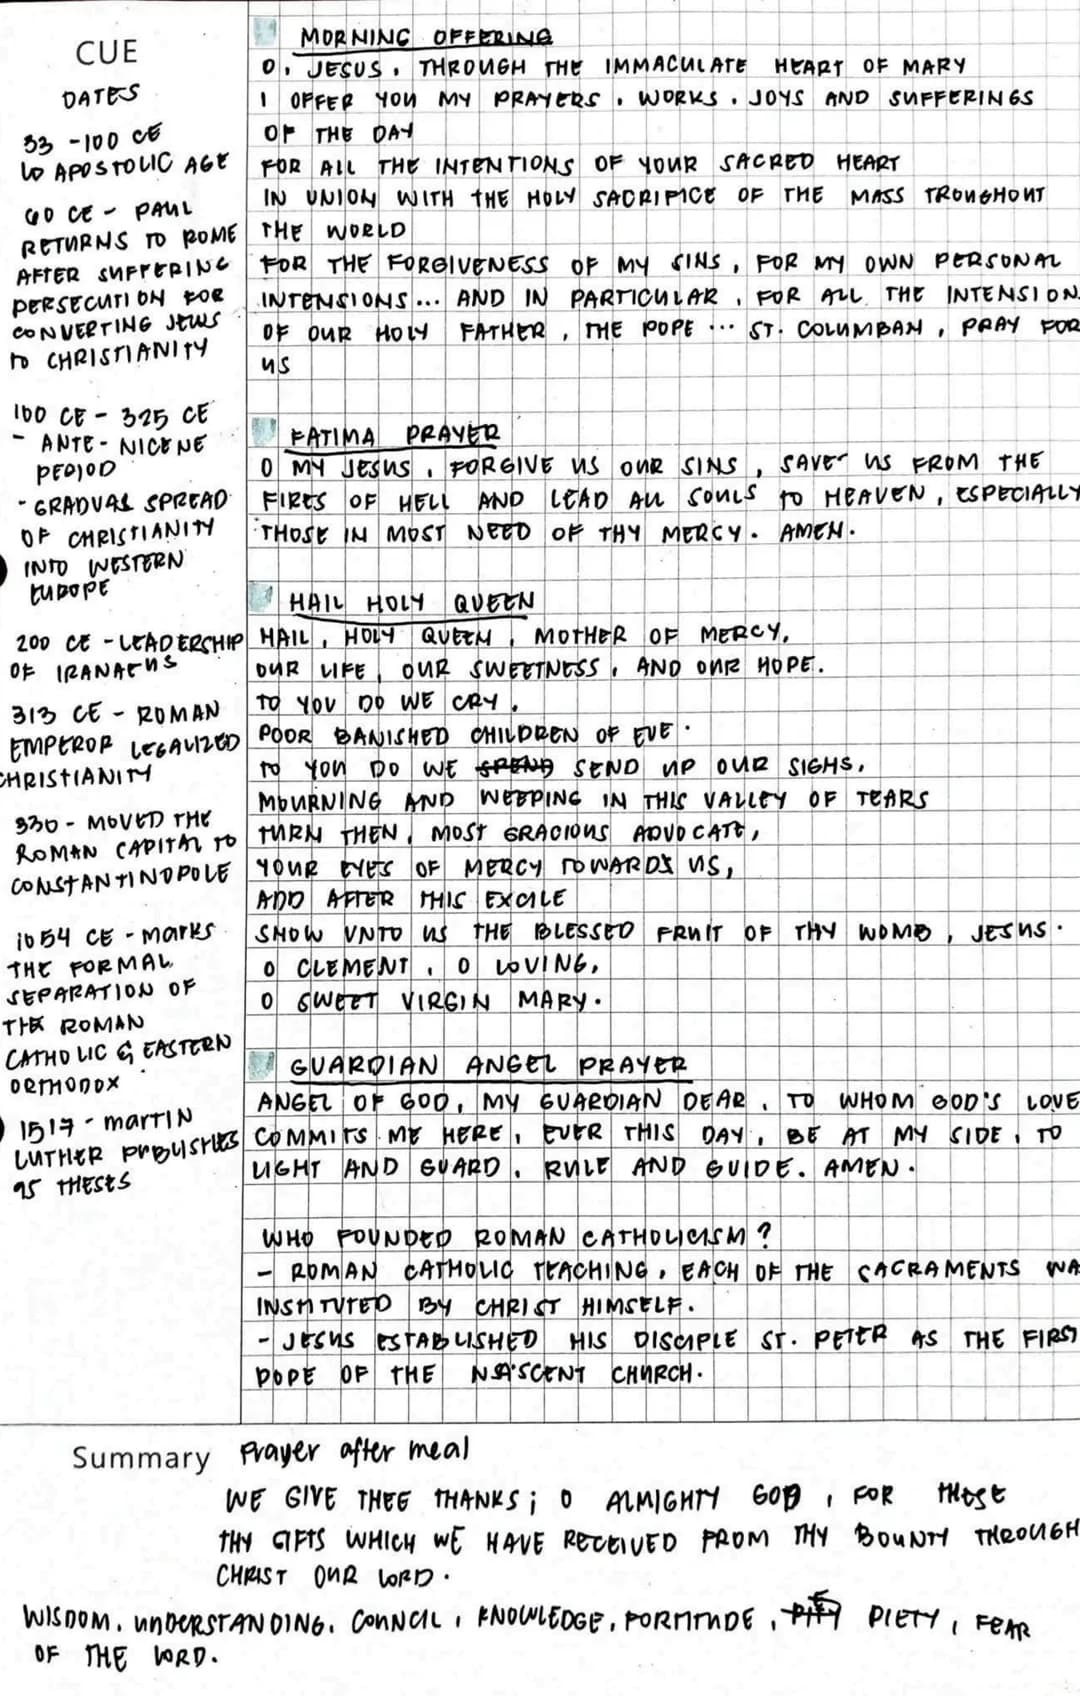 CUE
DATES
33 -100 CE
↳ APOSTOLIC AGE
60 CE - PAUL
RETURNS TO ROME
AFTER SUFFERING
PERSECUTION FOR
CONVERTING JEWS
TO CHRISTIANITY
100 CE - 325 CE
- ANTE - NICENE
PERIOD
- GRADUAL SPREAD
OF CHRISTIANITY
INTO WESTERN
EUROPE
200 CE - LEADERSHIP
OF IRANAEUS
313 CE - ROMAN
EMPEROR LEGALIZED
CHRISTIANITY
330 - MOVED THE
ROMAN CAPITAL TO
CONSTANTINOPOLE
1054 CE - MARKS
THE FORMAL
SEPARATION OF
THE ROMAN
CATHOLIC & EASTERN
ORTHODOX
1517 - MARTIN
LUTHER PUBLISHES
95 THESES
MORNING OFFERING
O, JESUS, THROUGH THE IMMACULATE HEART OF MARY
I OFFER YOU MY PRAYERS, WORKS, JOYS AND SUFFERINGS
OF THE DAY
FOR ALL THE INTENTIONS OF YOUR SACRED HEART
IN UNION WITH THE HOLY SACRIFICE OF THE MASS TROUGHOUT
THE WORLD
FOR THE FORGIVENESS OF MY SINS, FOR MY OWN PERSONAL
INTENSIONS... AND IN PARTICULAR, FOR ALL THE INTENSION
OF OUR HOLY FATHER, THE POPE ... ST. COLUMBAN, PRAY FOR
US
FATIMA PRAYER
O MY JESUS, FORGIVE US OUR SINS, SAVE US FROM THE
FIRES OF HELL AND LEAD ALL SOULS TO HEAVEN, ESPECIALLY
THOSE IN MOST NEED OF THY MERCY. AMEN.
HAIL HOLY QUEEN
HAIL, HOLY QUEEN, MOTHER OF MERCY,
OUR LIFE, OUR SWEETNESS, AND OUR HOPE.
TO YOU DO WE CRY,
POOR BANISHED CHILDREN OF EVE.
TO YOU DO WE SPEND SEND UP OUR SIGHS,
MOURNING AND WEEPING IN THIS VALLEY OF TEARS
TURN THEN, MOST GRACIOUS ADVOCATE,
YOUR EYES OF MERCY TOWARDS US,
ADD AFTER THIS EXCILE
SHOW UNTO US THE BLESSED FRUIT OF THY WOMB, JESUS.
O CLEMENT, O LOVING,
O SWEET VIRGIN MARY.
GUARDIAN ANGEL PRAYER
ANGEL OF GOD, MY GUARDIAN DEAR, TO WHOM GOD'S LOVE
COMMITS ME HERE, EVER THIS DAY, BE AT MY SIDE, TO
LIGHT AND GUARD, RULE AND GUIDE. AMEN.
WHO FOUNDED ROMAN CATHOLICISM?
- ROMAN CATHOLIC TEACHING, EACH OF THE SACRAMENTS WA
INSTITUTED BY CHRIST HIMSELF.
- JESUS ESTABLISHED HIS DISCIPLE ST. PETER AS THE FIRST
POPE OF THE NASCENT CHURCH.
Summary Prayer after meal
WE GIVE THEE THANKS; O ALMIGHTY GOD, FOR THESE
THY GIFTS WHICH WE HAVE RECEIVED FROM THY BOUNTY THROUGH
CHRIST OUR LORD.
WISDOM, UNDERSTANDING, COUNCIL, KNOWLEDGE, FORTITUDE, PIETY, FEAR
OF THE LORD.